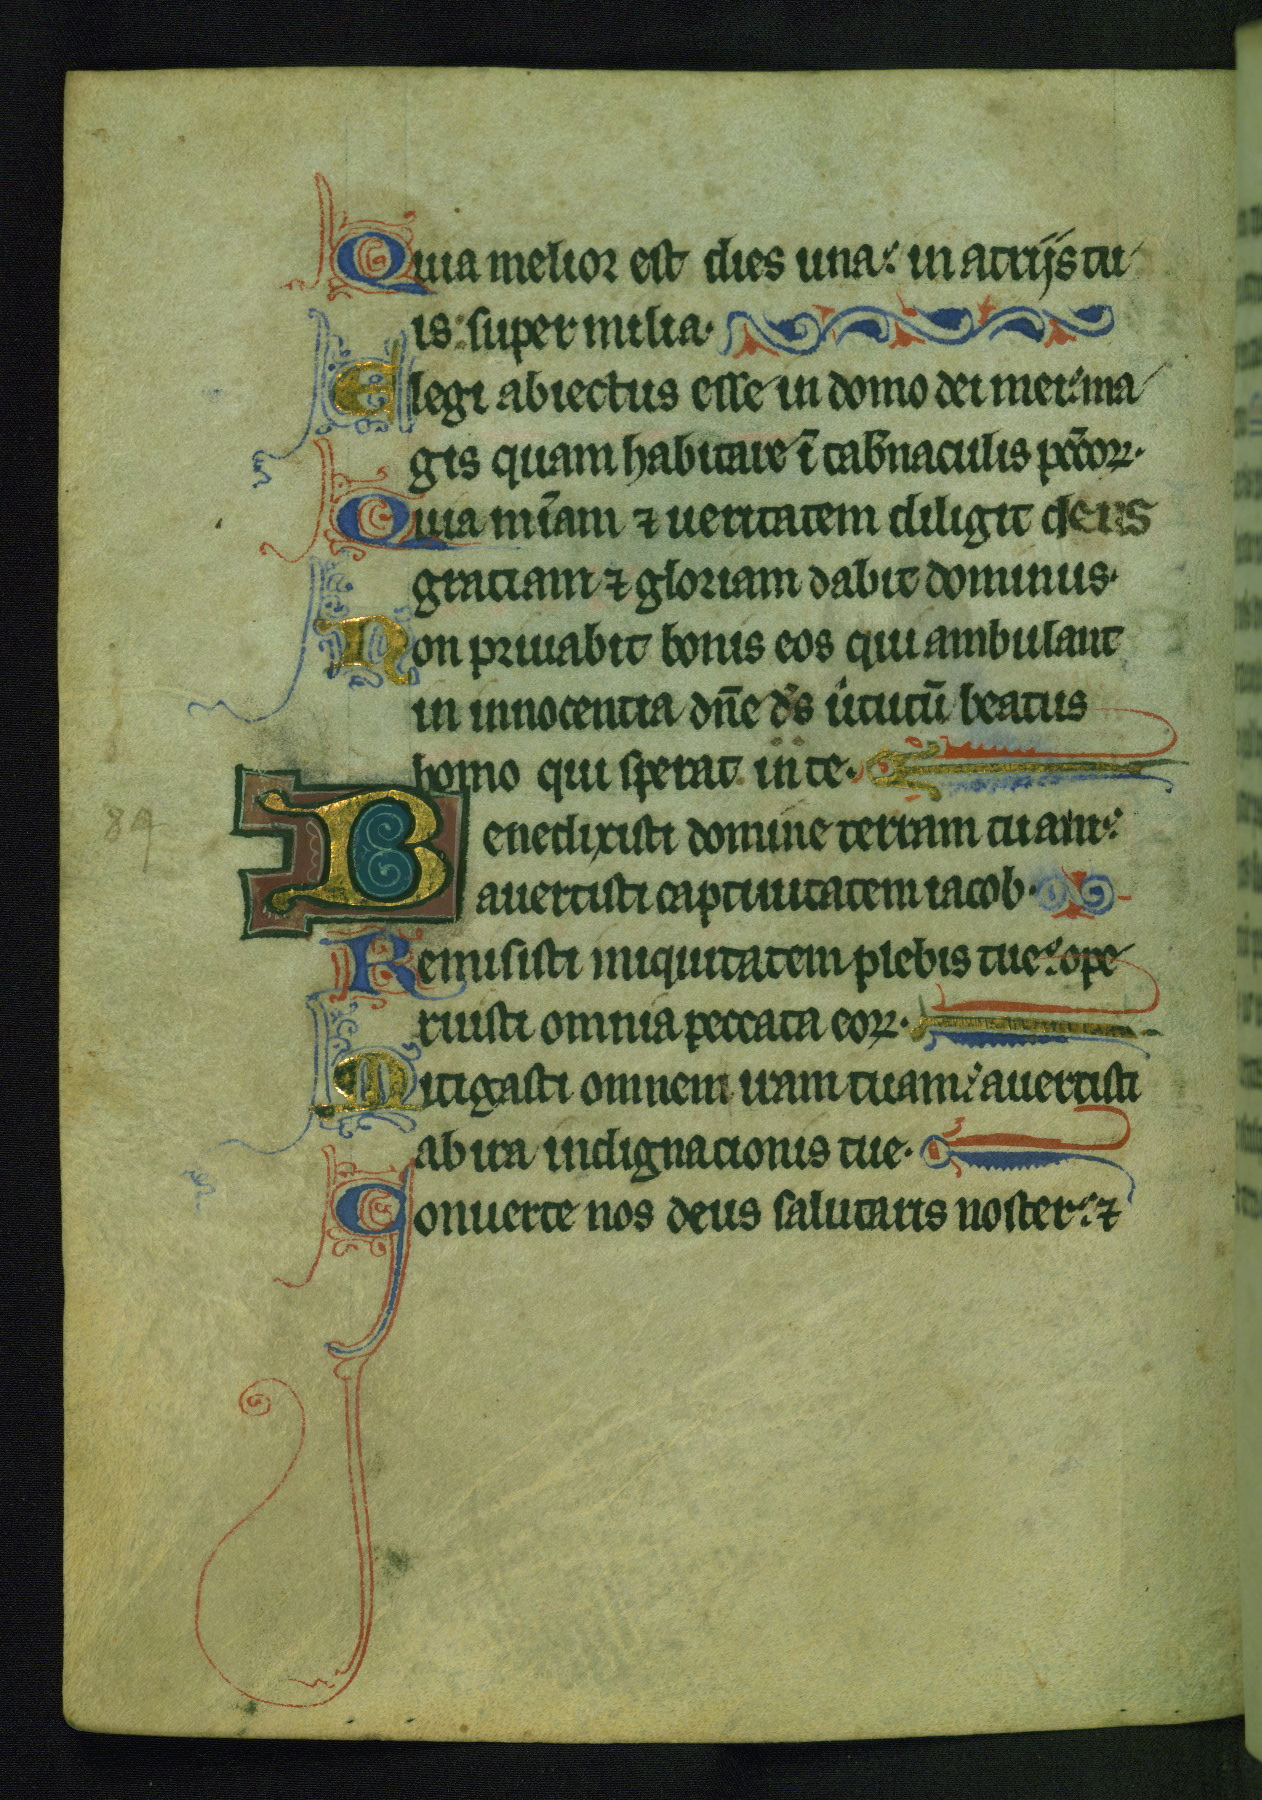 Quia melior est dies una: in atrijs tu
is: super milia.
Elegi abiectus esse in domo dei mei: ma
gis quam habitare ī tab̄naculis pccōꝝ.
Quia mīam ⁊ ueritatem diligit deus
graciam ⁊ gloriam dabit dominus.
Non priuabit bonis eos qui ambulant
in innocentia dn̄e ds uirtutū beatus
homo qui sperat in te.
84
Benedixisti domine terram tuam:
auertisti captiuitatem iacob.
Remisisti iniquitatem plebis tue: ope
ruisti omnia peccata eoꝝ.
Mitigasti omnem iram tuam: auertisti
ab ira indignacionis tue.
Conuerte nos deus salutaris noster: ⁊